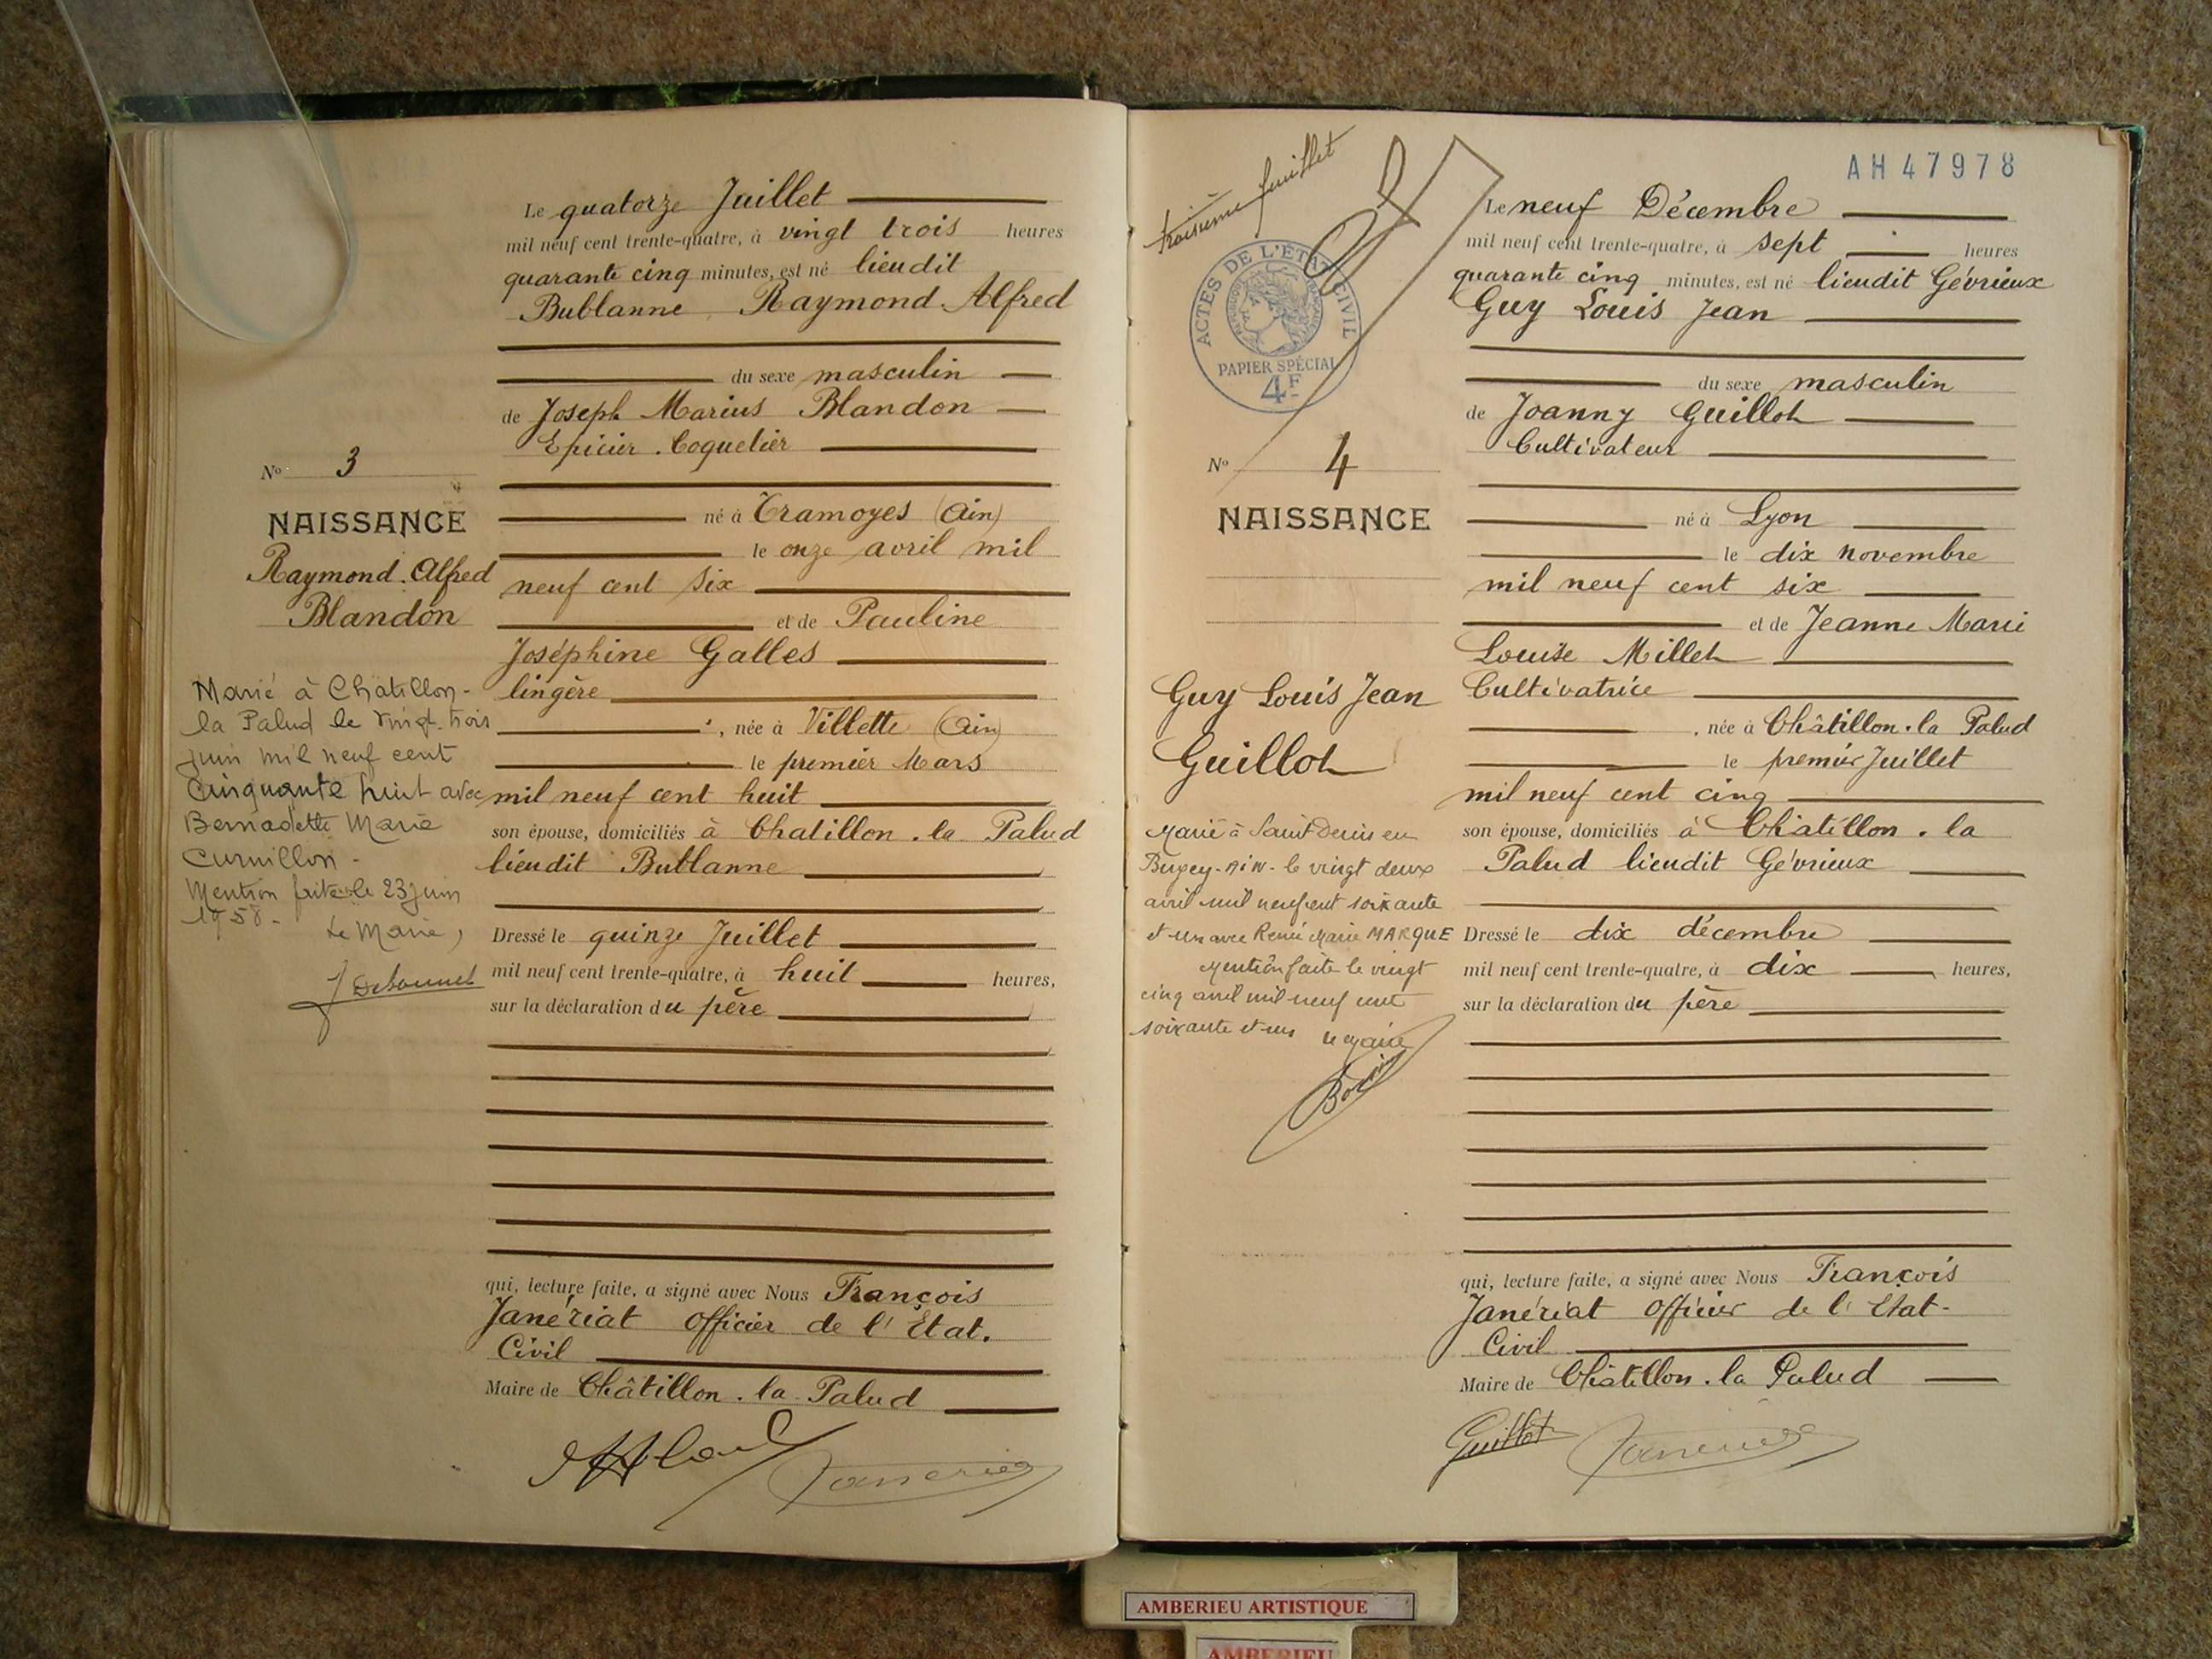 Le quatorze Juillet
mil neuf cent trente-quatre, à vingt trois heures
quarante cinq minutes, est né lieudit
Bublanne, Raymond Alfred
du sexe masculin
de Joseph Marius Blandon
Epicier. Coquetier
né à Tramoyes (Ain)
le onze avril mil
neuf cent six
et de Pauline
Joséphine Galles
lingère
, née à Villette (Ain)
le premier Mars
mil neuf cent huit
son épouse, domiciliés à Chatillon. la Palud
lieudit Bublanne
Dressé le quinze Juillet
mil neuf cent trente-quatre, à huit heures,
sur la déclaration du père
qui, lecture faite, a signé avec Nous François
Janériat officier de l'Etat.
Civil
Maire de Châtillon. la Palud
No 3
NAISSANCE
Raymond. Alfred
Blandon
Marié à Chatillon-
la Palud le vingt-trois
juin mil neuf cent
cinquante huit avec
Bernadette Marie
Mention faite le 23 juin
1958-
Le Maire,
troisième feuillet
ACTES DE L'ÉTAT CIVIL
PAPIER SPÉCIAL
4F
AH47978
Le neuf Décembre
mil neuf cent trente-quatre, à sept heures
quarante cinq minutes, est né lieudit Gévrieux
Guy Louis Jean
du sexe masculin
de Joanny Guillot
Cultivateur
né à Lyon
le dix novembre
mil neuf cent six
et de Jeanne Marie
Louise Millet
Cultivatrice
, née à Châtillon. la Palud
le premier Juillet
mil neuf cent cinq
son épouse, domiciliés à Châtillon. la
Palud lieudit Gévrieux
Dressé le dix décembre
mil neuf cent trente-quatre, à dix heures,
sur la déclaration du père
qui, lecture faite, a signé avec Nous François
Janériat officier de l'Etat-
Civil
Maire de Châtillon. la Palud
Guillot
No 4
NAISSANCE
Guy Louis Jean
Guillot
Marié à Saint Denis en
Bugey-AIN- le vingt deux
avril mil neuf cent soixante
et un avec Renée Marie MARQUE
Mention faite le vingt
cinq avril mil neuf cent
soixante et un le Maire
AMBERIEU ARTISTIQUE
AMBERIEU